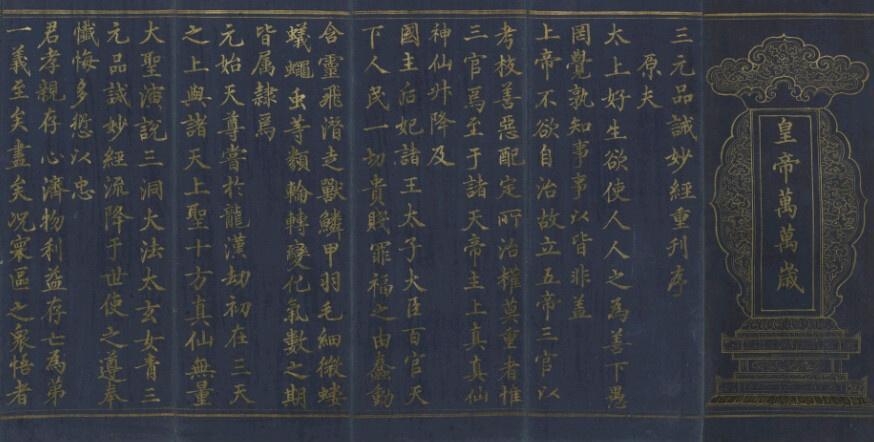 皇帝萬萬歲
三元品誡妙經重刊序
原夫
太上好生欲使人人之為善下愚
罔覺孰知事事以皆非蓋
上帝不欲自治故立五帝三官以
考校善惡配定所治權莫重者惟
三官焉至于諸天帝主上真真仙
神仙升降及
國主后妃諸王太子大臣百官天
下人民一切貴賤罪福之由蠢動
含靈飛潛走獸鱗甲羽毛細微螻
蟻蠅虫等類輪轉變化氣數之期
皆属隸焉
元始天尊嘗於龍漢劫初在三天
之上與諸天上聖十方真仙無量
大聖演說三洞大法太玄女青三
元品誡妙經流降于世使之遵奉
懺悔多愆以忠
君孝親存心濟物利益存亡為弟
一義至矣盡矣况寰區之衆悟者